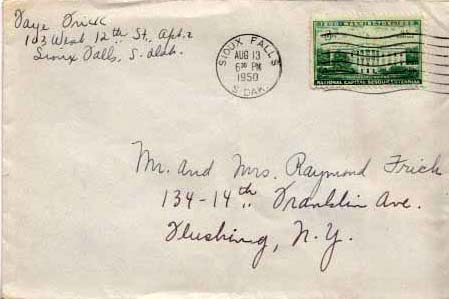 Faye Frick
103 West 12th St. Apt. 2
Sioux Falls, S. Dak.
SIOUX FALLS
AUG 13
6 30 PM
1950
S. DAK.
1800 · WASHINGTON · 1950
NATIONAL CAPITAL SESQUICENTENNIAL
Mr. and Mrs. Raymond Frick
134-14th Franklin Ave.
Flushing, N.Y.